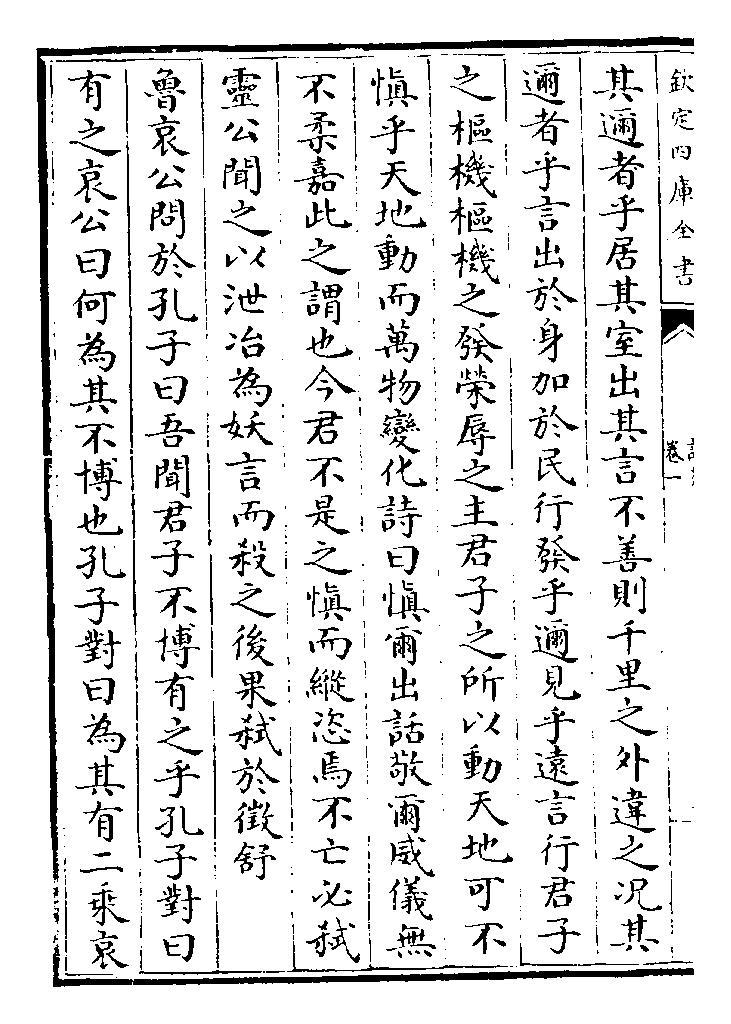 欽定四庫全書
卷一
其邇者乎居其室出其言不善則千里之外違之况其
邇者乎言出於身加於民行發乎邇見乎遠言行君子
之樞機樞機之發榮辱之主君子之所以動天地可不
慎乎天地動而萬物變化詩曰慎爾出話敬爾威儀無
不柔嘉此之謂也今君不是之慎而縱恣焉不亡必弑
靈公聞之以泄冶為妖言而殺之後果弑於徵舒
魯哀公問於孔子曰吾聞君子不博有之乎孔子對曰
有之哀公曰何為其不博也孔子對曰為其有二乘哀